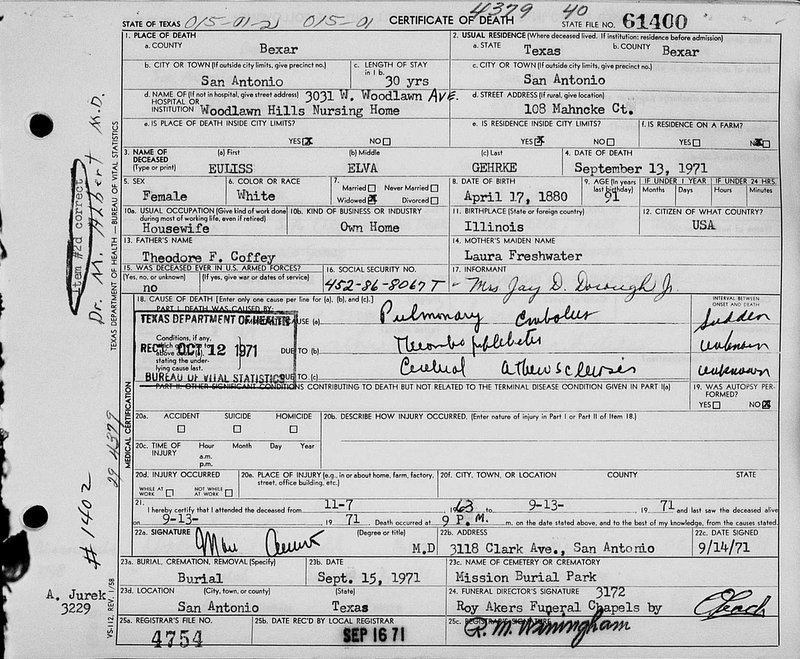 4379 40
STATE OF TEXAS 015-01-21 015-01 CERTIFICATE OF DEATH STATE FILE NO. 61400
1. PLACE OF DEATH
a. COUNTY Bexar
2. USUAL RESIDENCE (Where deceased lived. If institution: residence before admission)
a. STATE Texas b. COUNTY Bexar
b. CITY OR TOWN (If outside city limits, give precinct no.) San Antonio
c. LENGTH OF STAY in 1 b. 30 yrs
c. CITY OR TOWN (If outside city limits, give precinct no.) San Antonio
d. NAME OF (If not in hospital, give street address) HOSPITAL OR INSTITUTION 3031 W. Woodlawn AVE.
Woodlawn Hills Nursing Home
d. STREET ADDRESS (If rural, give location)
108 Mahncke Ct.
e. IS PLACE OF DEATH INSIDE CITY LIMITS?
YES X NO
e. IS RESIDENCE INSIDE CITY LIMITS?
YES X NO
f. IS RESIDENCE ON A FARM?
YES NO X
3. NAME OF DECEASED (Type or print)
(a) First EULISS
(b) Middle ELVA
(c) Last GEHRKE
4. DATE OF DEATH
September 13, 1971
5. SEX Female
6. COLOR OR RACE White
7. Married Never Married
Widowed X Divorced
8. DATE OF BIRTH April 17, 1880
9. AGE (In years last birthday) 91
IF UNDER 1 YEAR Months Days
IF UNDER 24 HRS. Hours Minutes
10a. USUAL OCCUPATION (Give kind of work done during most of working life, even if retired) Housewife
10b. KIND OF BUSINESS OR INDUSTRY Own Home
11. BIRTHPLACE (State or foreign country) Illinois
12. CITIZEN OF WHAT COUNTRY? USA
13. FATHER'S NAME
Theodore F. Coffey
14. MOTHER'S MAIDEN NAME
Laura Freshwater
15. WAS DECEASED EVER IN U.S. ARMED FORCES?
(Yes, no, or unknown) (If yes, give war or dates of service)
no
16. SOCIAL SECURITY NO.
452-86-8067 T
17. INFORMANT
Mrs Jay D. Dorough Jr.
18. CAUSE OF DEATH [Enter only one cause per line for (a), (b), and (c).]
INTERVAL BETWEEN ONSET AND DEATH
PART I. DEATH WAS CAUSED BY:
CAUSE (a) Pulmonary Embolus Sudden
TEXAS DEPARTMENT OF HEALTH
REC'D OCT 12 1971
BUREAU OF VITAL STATISTICS
Conditions, if any,
stating the underlying cause last.
DUE TO (b) Thrombophlebitis unknown
DUE TO (c) Cerebral Atherosclerosis unknown
PART II. OTHER SIGNIFICANT CONDITIONS CONTRIBUTING TO DEATH BUT NOT RELATED TO THE TERMINAL DISEASE CONDITION GIVEN IN PART I(a)
19. WAS AUTOPSY PERFORMED?
YES NO X
20a. ACCIDENT SUICIDE HOMICIDE
20b. DESCRIBE HOW INJURY OCCURRED. (Enter nature of injury in Part I or Part II of Item 18.)
20c. TIME OF INJURY Hour Month Day Year
a.m.
p.m.
20d. INJURY OCCURRED
WHILE AT WORK NOT WHILE AT WORK
20e. PLACE OF INJURY (e.g., in or about home, farm, factory, street, office building, etc.)
20f. CITY, TOWN, OR LOCATION COUNTY STATE
21. I hereby certify that I attended the deceased from 11-7 1963 to 9-13- 1971 and last saw the deceased alive
on 9-13- 1971 Death occurred at 9 P.M. m. on the date stated above, and to the best of my knowledge, from the causes stated.
22a. SIGNATURE (Degree or title) M.D
22b. ADDRESS
3118 Clark Ave., San Antonio
22c. DATE SIGNED
9/14/71
23a. BURIAL, CREMATION, REMOVAL (Specify)
Burial
23b. DATE
Sept. 15, 1971
23c. NAME OF CEMETERY OR CREMATORY
Mission Burial Park
23d. LOCATION (City, town, or county) (State)
San Antonio Texas
24. FUNERAL DIRECTOR'S SIGNATURE 3172
Roy Akers Funeral Chapels by
25a. REGISTRAR'S FILE NO.
4754
25b. DATE REC'D BY LOCAL REGISTRAR
SEP 16 71
25c. REGISTRAR'S SIGNATURE
MEDICAL CERTIFICATION
TEXAS DEPARTMENT OF HEALTH — BUREAU OF VITAL STATISTICS
VS-112, REV. 1/58
Item #2d correct
Dr. M. Albert M.D.
29 4379
# 1402
A. Jurek
3229